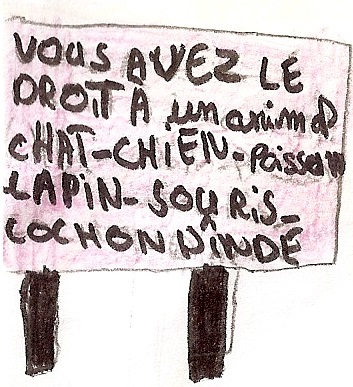 VOUS AVEZ LE
DROIT A un animal
CHAT-CHIEN-Poisson
LAPIN-SOURIS-
COCHON D'INDE